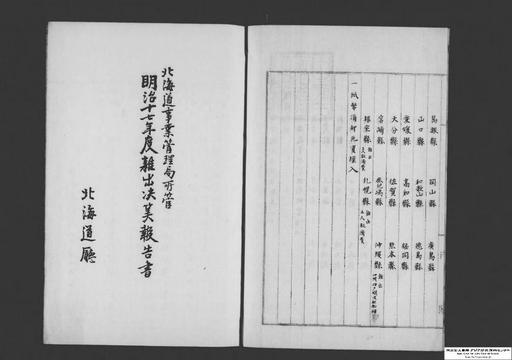 島根縣 岡山縣 廣島縣
山口縣 和歌山縣 徳島縣
愛媛縣 高知縣 福岡縣
大分縣 佐賀縣 熊本縣
宮崎縣 鹿兒島縣 沖縄縣
根室縣 札幌縣
一紙幣消却元資繰入
北海道事業管理局所管
明治十七年度雜出決算報告書
北海道廳